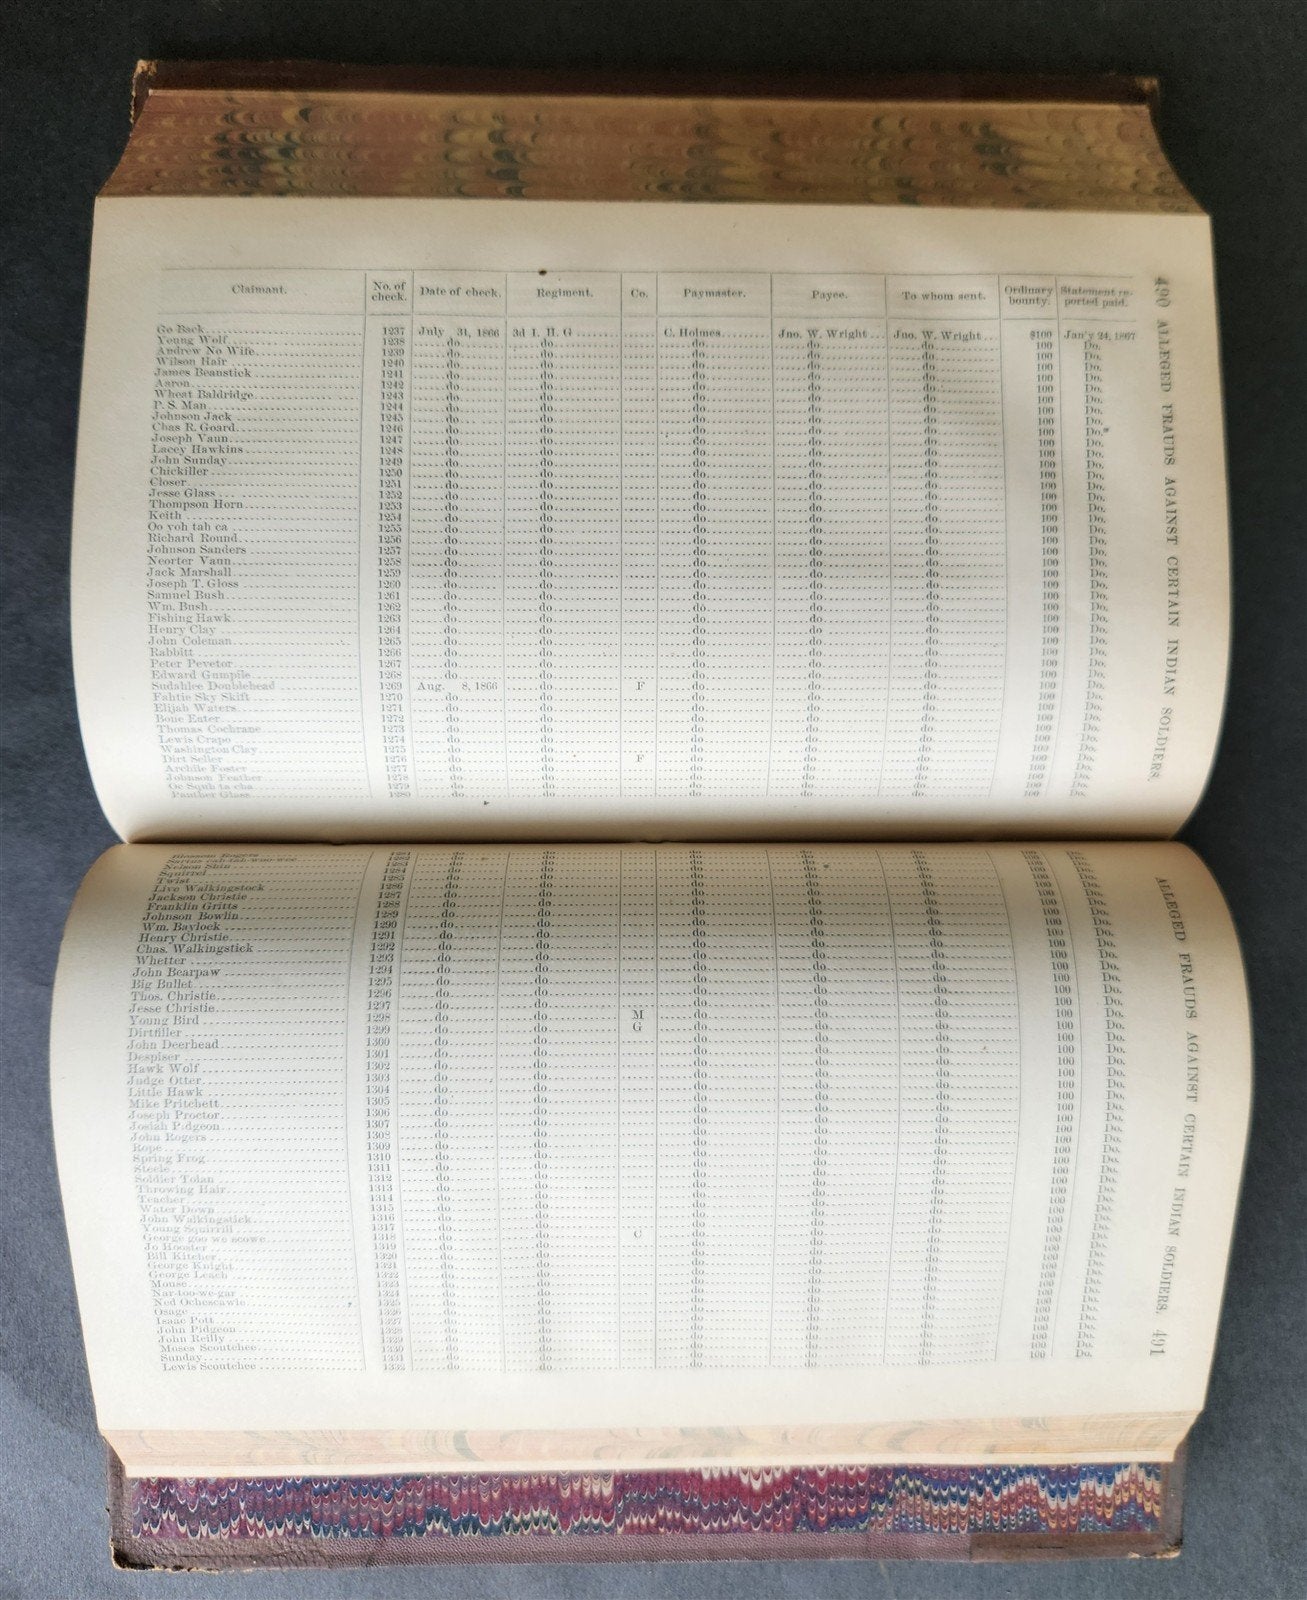 490 ALLEGED FRAUDS AGAINST CERTAIN INDIAN SOLDIERS.
Claimant. No. of check. Date of check. Regiment. Co. Paymaster. Payee. To whom sent. Ordinary bounty. Statement reported paid.
Go Back 1237 July 31, 1866 3d I. H. G C. Holmes Jno. W. Wright Jno. W. Wright $100 Jan'y 24, 1867
Young Wolf 1238 do do do do do 100 Do.
Andrew No Wife 1239 do do do do do 100 Do.
Wilson Hair 1240 do do do do do 100 Do.
James Beanstick 1241 do do do do do 100 Do.
Aaron 1242 do do do do do 100 Do.
Wheat Baldridge 1243 do do do do do 100 Do.
P. S. Man 1244 do do do do do 100 Do.
Johnson Jack 1245 do do do do do 100 Do.
Chas R. Goard 1246 do do do do do 100 Do.
Joseph Vaun 1247 do do do do do 100 Do.
Lacey Hawkins 1248 do do do do do 100 Do.
John Sunday 1249 do do do do do 100 Do.
Chickiller 1250 do do do do do 100 Do.
Closer 1251 do do do do do 100 Do.
Jesse Glass 1252 do do do do do 100 Do.
Thompson Horn 1253 do do do do do 100 Do.
Keith 1254 do do do do do 100 Do.
Oo yoh tah ca 1255 do do do do do 100 Do.
Richard Round 1256 do do do do do 100 Do.
Johnson Sanders 1257 do do do do do 100 Do.
Neorter Vaun 1258 do do do do do 100 Do.
Jack Marshall 1259 do do do do do 100 Do.
Joseph T. Gloss 1260 do do do do do 100 Do.
Samuel Bush 1261 do do do do do 100 Do.
Wm. Bush 1262 do do do do do 100 Do.
Fishing Hawk 1263 do do do do do 100 Do.
Henry Clay 1264 do do do do do 100 Do.
John Coleman 1265 do do do do do 100 Do.
Rabbitt 1266 do do do do do 100 Do.
Peter Pevetor 1267 do do do do do 100 Do.
Edward Gumpile 1268 do do do do do 100 Do.
Sudahlee Doublehead 1269 Aug. 8, 1866 do F do do do 100 Do.
Fahtie Sky Skift 1270 do do do do do 100 Do.
Elijah Waters 1271 do do do do do 100 Do.
Bone Eater 1272 do do do do do 100 Do.
Thomas Cochrane 1273 do do do do do 100 Do.
Lewis Crapo 1274 do do do do do 100 Do.
Washington Clay 1275 do do do do do 100 Do.
Dirt Seller 1276 do do F do do do 100 Do.
Archile Foster 1277 do do do do do 100 Do.
Johnson Feather 1278 do do do do do 100 Do.
Oc Squh ta cha 1279 do do do do do 100 Do.
Panther Glass 1280 do do do do do 100 Do.
ALLEGED FRAUDS AGAINST CERTAIN INDIAN SOLDIERS. 491
Blossom Rogers 1281 do do do do do 100 Do.
1282 do do do do do 100 Do.
Nelson Shin 1283 do do do do do 100 Do.
Squirrel 1284 do do do do do 100 Do.
Twist 1285 do do do do do 100 Do.
Live Walkingstock 1286 do do do do do 100 Do.
Jackson Christie 1287 do do do do do 100 Do.
Franklin Gritts 1288 do do do do do 100 Do.
Johnson Bowlin 1289 do do do do do 100 Do.
Wm. Baylock 1290 do do do do do 100 Do.
Henry Christie 1291 do do do do do 100 Do.
Chas. Walkingstick 1292 do do do do do 100 Do.
Whetter 1293 do do do do do 100 Do.
John Bearpaw 1294 do do do do do 100 Do.
Big Bullet 1295 do do do do do 100 Do.
Thos. Christie 1296 do do do do do 100 Do.
Jesse Christie 1297 do do do do do 100 Do.
Young Bird 1298 do do M do do do 100 Do.
Dirtfiller 1299 do do G do do do 100 Do.
John Deerhead 1300 do do do do do 100 Do.
Despiser 1301 do do do do do 100 Do.
Hawk Wolf 1302 do do do do do 100 Do.
Judge Otter 1303 do do do do do 100 Do.
Little Hawk 1304 do do do do do 100 Do.
Mike Pritchett 1305 do do do do do 100 Do.
Joseph Proctor 1306 do do do do do 100 Do.
Josiah Pidgeon 1307 do do do do do 100 Do.
John Rogers 1308 do do do do do 100 Do.
Rope 1309 do do do do do 100 Do.
Spring Frog 1310 do do do do do 100 Do.
Steele 1311 do do do do do 100 Do.
Soldier Tolan 1312 do do do do do 100 Do.
Throwing Hair 1313 do do do do do 100 Do.
Teacher 1314 do do do do do 100 Do.
Water Down 1315 do do do do do 100 Do.
John Walkingstick 1316 do do do do do 100 Do.
Young Squirrill 1317 do do do do do 100 Do.
George goo we scowe 1318 do do C do do do 100 Do.
Jo Rooster 1319 do do do do do 100 Do.
Bill Kitcher 1320 do do do do do 100 Do.
George Knight 1321 do do do do do 100 Do.
George Leach 1322 do do do do do 100 Do.
Mouse 1323 do do do do do 100 Do.
Nar-too-we-gar 1324 do do do do do 100 Do.
Ned Ochescawle 1325 do do do do do 100 Do.
Osage 1326 do do do do do 100 Do.
Isaac Pott 1327 do do do do do 100 Do.
John Pidgeon 1328 do do do do do 100 Do.
John Reilly 1329 do do do do do 100 Do.
Moses Scoutchee 1330 do do do do do 100 Do.
Sunday 1331 do do do do do 100 Do.
Lewis Scoutchee 1332 do do do do do 100 Do.